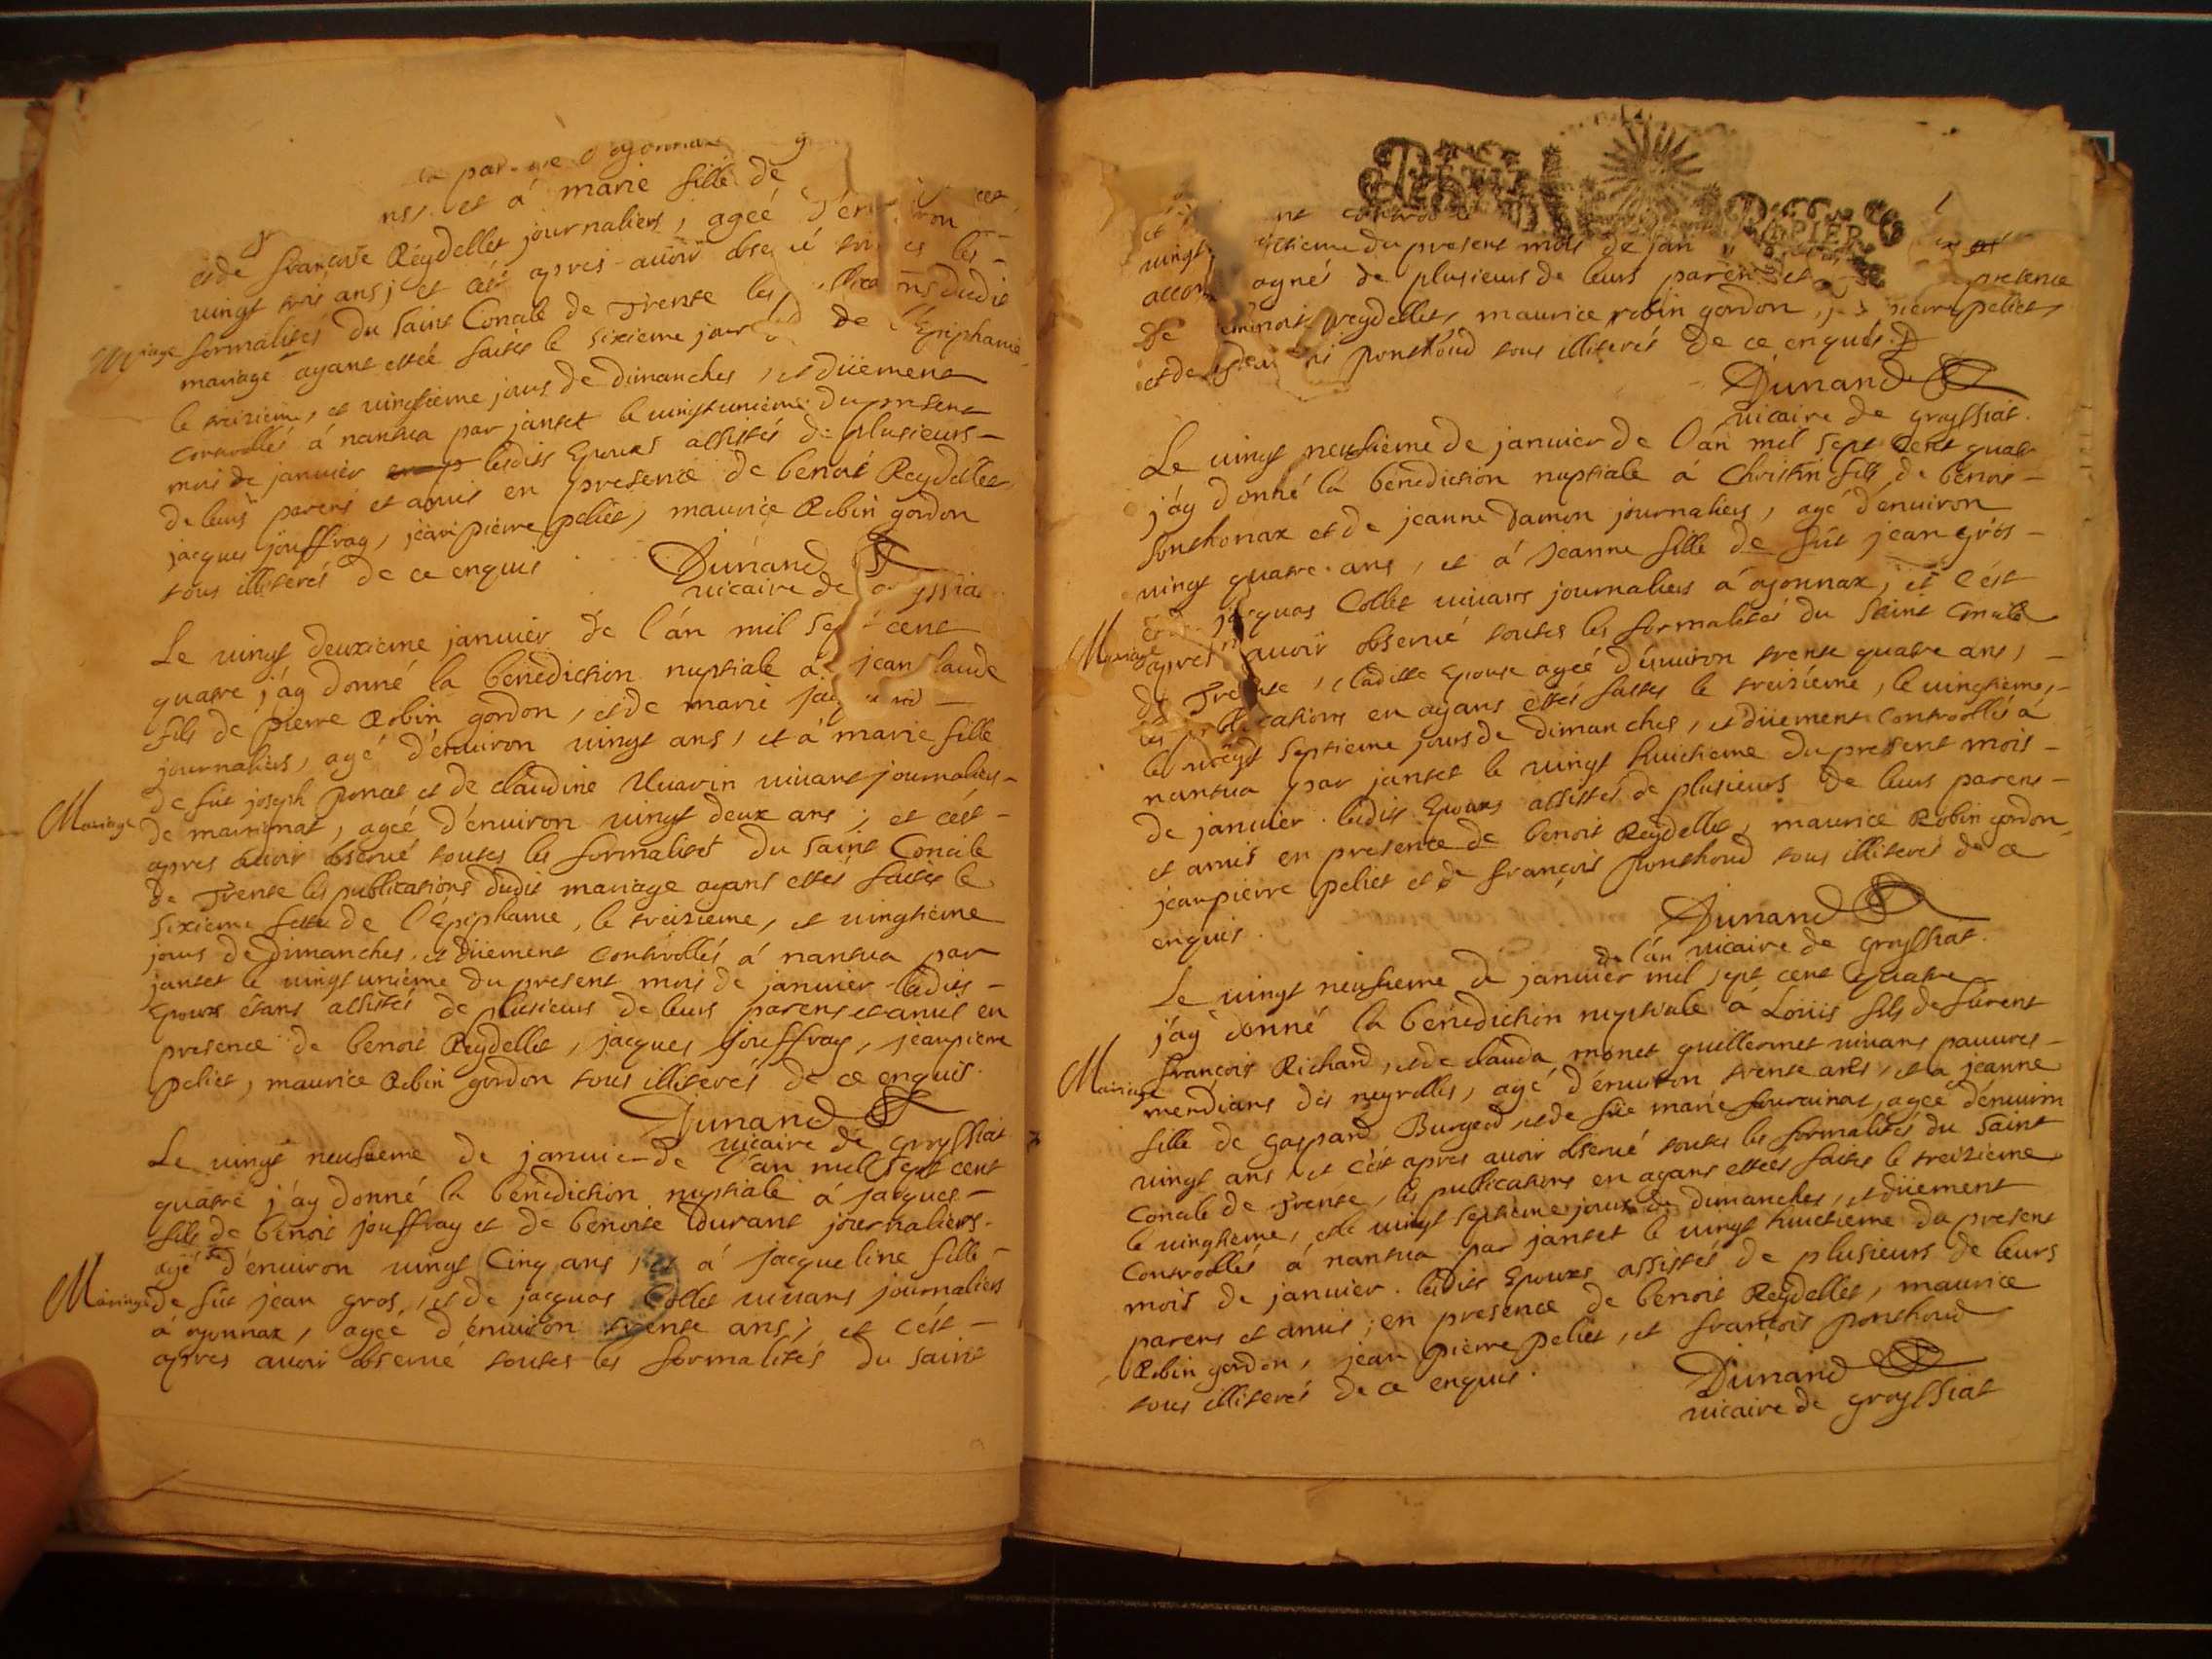 et à marie fille de
et de françoise Reydellet journaliers, ageé d'environ
vingt trois ans; et c'est apres avoir observé toutes les
Mariage
formalités du saint Concile de Trente les dudit
mariage ayant estéé faites le sixieme jour de l'Epiphanie
le treizieme, et vingtieme jours de dimanches, et düement
controllés à nantua par jantet le vingtunieme du present
mois de janvier lesdits Epoux assistés de plusieurs
de leurs parens et amis en presence de benoit Reydellet
jacques jouffray, jean pierre peliet, maurice Robin gordon
tous illiterés de ce enquis
Dunand
vicaire de
Le vingt deuxieme janvier de l'an mil sept cent
quatre j'ay donné la benediction nuptiale à jean Claude
fils de pierre Robin gordon, et de marie
journaliers, agé d'environ vingt ans, et à marie fille
de fût joseph ponat et de claudine Nuarin vivant journaliers
Mariage
de martignat, ageé d'environ vingt deux ans; et c'est
apres avoir observé toutes les formalités du saint Concile
de Trente les publications dudit mariage ayans estés faites le
sixieme feste de l'Epiphanie, le treizieme, et vingtieme
jours de dimanches, et düement controllés à nantua par
jantet le vingt unieme du present mois de janvier lesdits
Epoux étans assistés de plusieurs de leurs parens et amis en
presence de benoit Reydellet, jacques jouffray, jeanpierre
peliet, maurice Robin gordon tous illiterés de ce enquis.
Dunand
vicaire de groyssiat
Le vingt neufieme de janvier de l'an mil sept cent
quatre j'ay donné la benediction nuptiale à jacques
fils de benoit jouffray et de benoite Durant journaliers
agé d'environ vingt Cinq ans, et à jacqueline fille
Mariage
de fût jean gros, et de jacquas Collet vivans journaliers
à oyonnax, ageé d'environ trente ans; et c'est
apres avoir observé toutes les formalités du saint
vingt du present mois de jan
accompagnés de plusieurs de leurs parens et presence
de benoit reydellet, maurice robin gordon, pierre peliet,
et de ponthoud tous illiterés de ce enquis.
Dunand
vicaire de groyssiat.
Le vingt neufieme de janvier de l'an mil sept cent quatre
j'ay donné la benediction nuptiale à Christin fils de benoit
Ponthonax et de jeanne Damon journaliers, agé d'environ
vingt quatre ans, et à jeanne fille de fût jean gros
et de jacquas Collet vivans journaliers à oyonnax, et c'est
Mariage
apres avoir observé toutes les formalités du saint Concile
de Trente, ladite Epouse ageé d'environ trente quatre ans,
les publications en ayans estés faites le treizieme, le vingtieme,
le vingt septieme jours de dimanches, et düement controllés à
nantua par jantet le vingt huictieme du present mois
de janvier. lesdits Epoux assistés de plusieurs de leurs parens
et amis en presence de benoit Reydellet, maurice Robin gordon,
jeanpierre peliet et de françois ponthoud tous illiterés de ce
enquis.
Dunand
vicaire de groyssiat.
de l'an
Le vingt neufieme de janvier mil sept cent quatre
j'ay donné la benediction nuptiale à Loüis fils de fürent
françois Richard, et de clauda monet guillermet vivans pauvres
Mariage
mendians des neyrolles, agé d'environ trente ans, et à jeanne
fille de gaspard Burgeod, et de füe marie fourainat, ageé d'environ
vingt ans et c'est apres avoir observé toutes les formalités du saint
Concile de Trente, les publications en ayans estéés faites le treizieme
le vingtieme, et le vingt septieme jours de dimanches, et düement
Controllés à nantua par jantet le vingt huictieme du present
mois de janvier. lesdits Epoux assistés de plusieurs de leurs
parens et amis; en presence de benoit Reydellet, maurice
Robin gordon, jean pierre peliet, et françois ponthoud
tous illiterés de ce enquis.
Dunand
vicaire de groyssiat